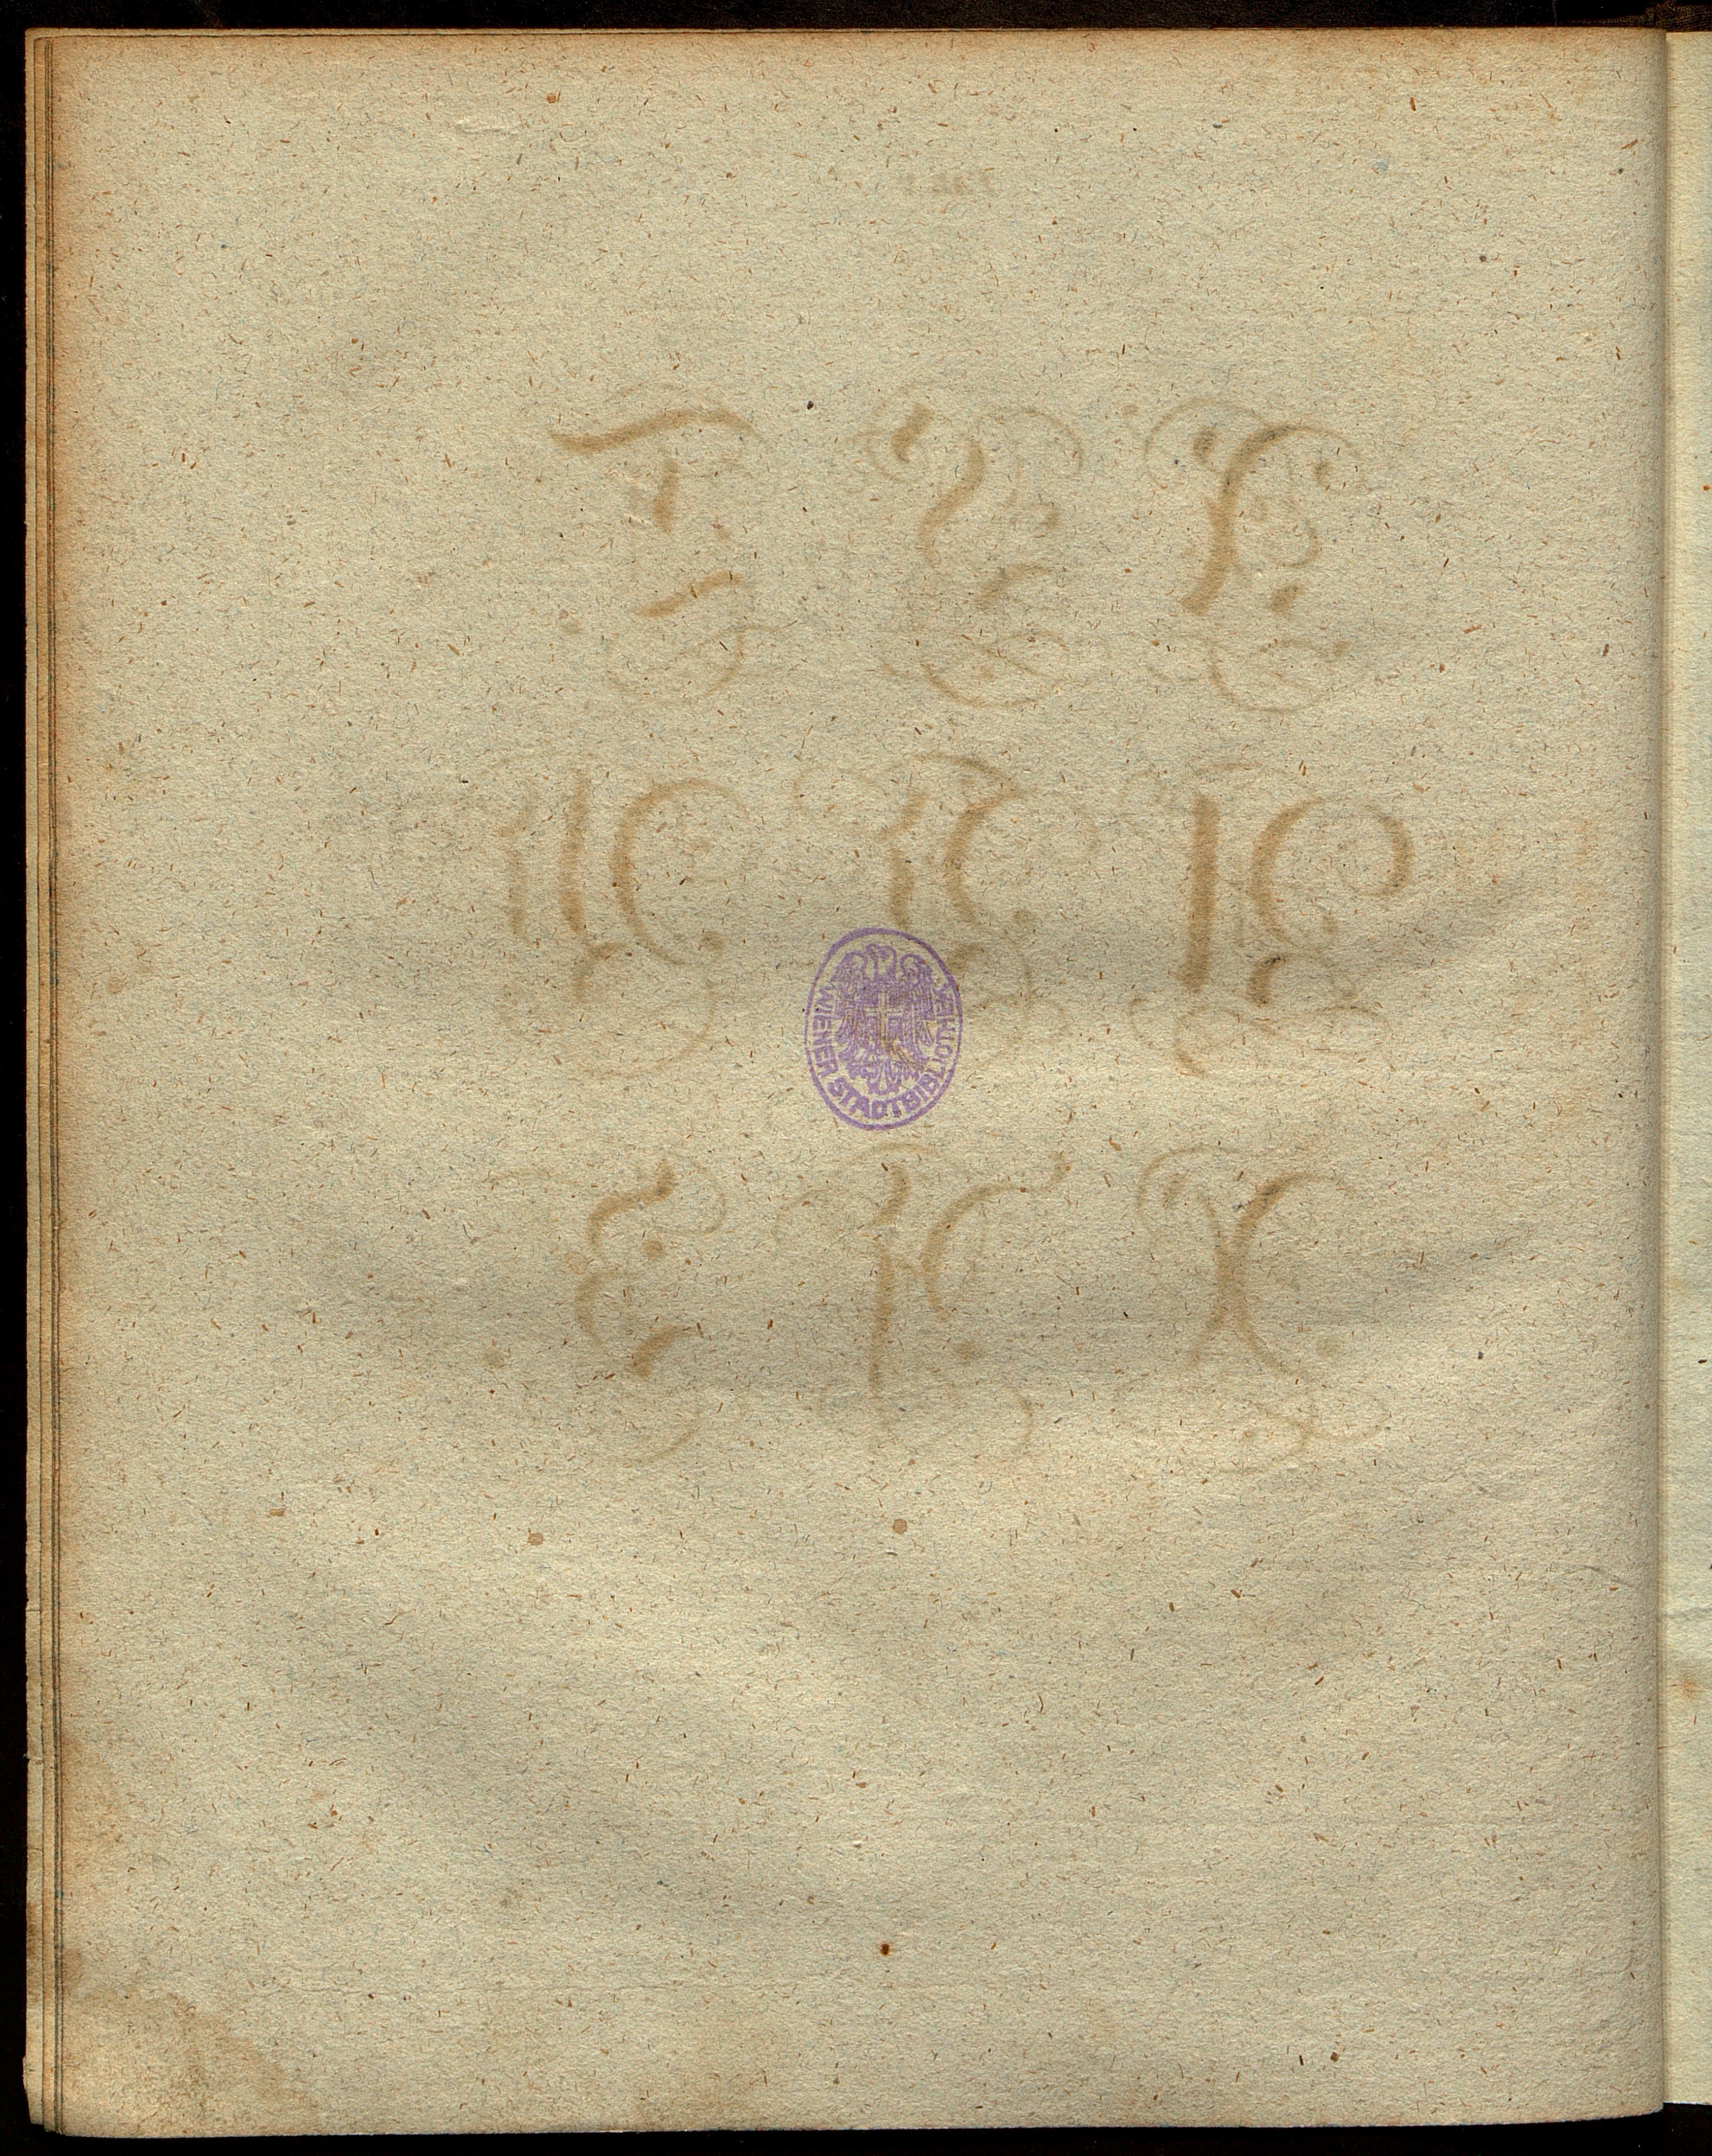 R S T
U V W
WIENER STADTBIBLIOTHEK
X Y Z